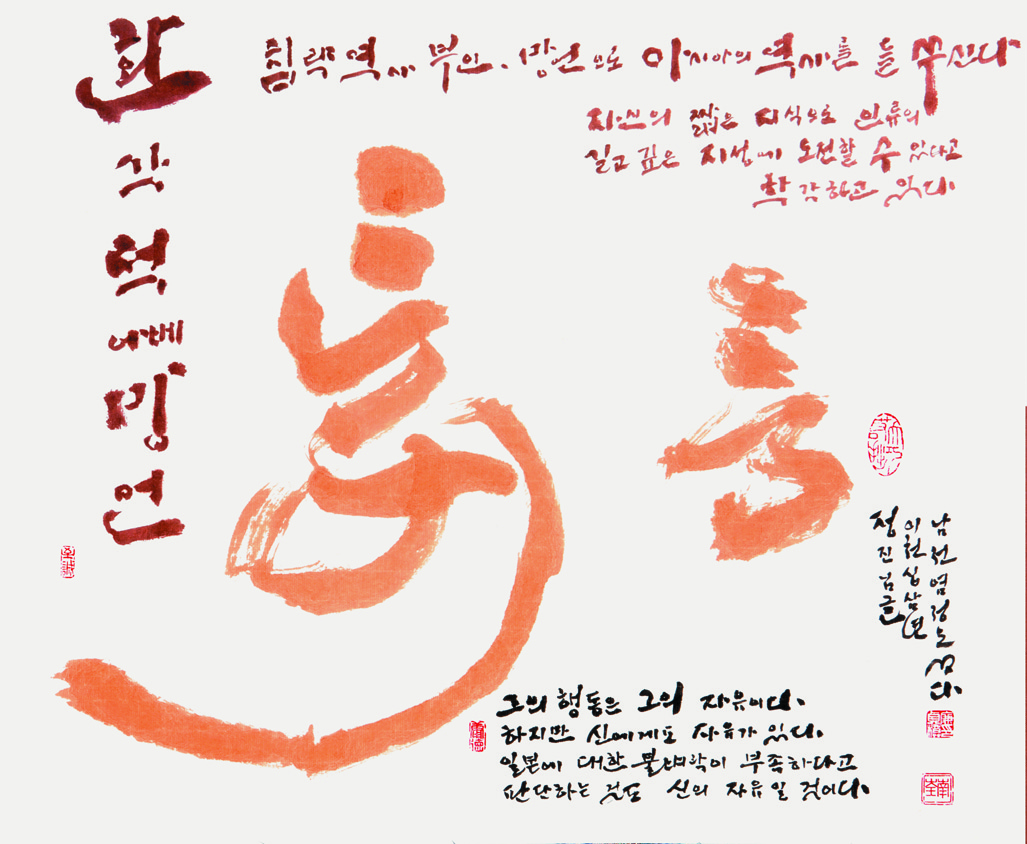 아베
망
언
침략역사 부인, 망언으로 아시아의 역사를 들 쑤신다
자신의 짧은 지식으로 인류의
길고 깊은 지성에 도전할 수 있다고
착각하고 있다.
妄言
정진님글
이천십삼년
남전 염정노 쓰다.
그의 행동은 그의 자유이다.
하지만 신에게도 자유가 있다.
일본에 대한 불벼락이 부족하다고
판단하는 것도 신의 자유일 것이다.